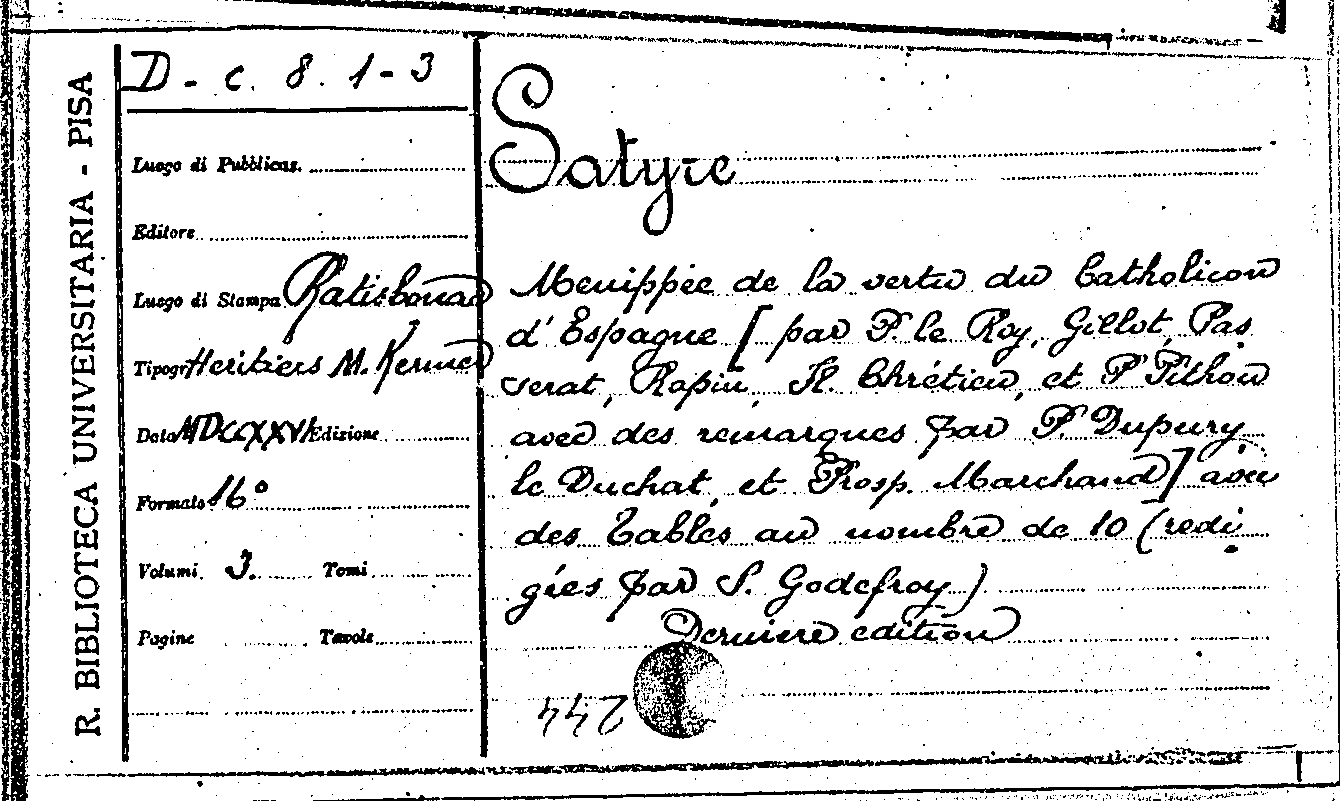 R. BIBLIOTECA UNIVERSITARIA - PISA
D - c. 8. 1-3
Luogo di Pubblicaz.
Editore
Luogo di Stampa Ratisbonae
Tipogr. Heritiers M. Kerner
Data MDCCXXVI Edizione
Formato 16°
Volumi 3. Tomi
Pagine Tavole
Satyre
Menippée de la vertu du Catholicon
d'Espagne [par P. le Roy, Gillot, Pas
serat, Rapin, Fl. Chrétien, et P. Pithou
avec des remarques par P. Dupury,
le Duchat, et Prosp. Marchand] avec
des Tables au nombre de 10 (redi
gées par S. Godefroy)
Derniere edition
442